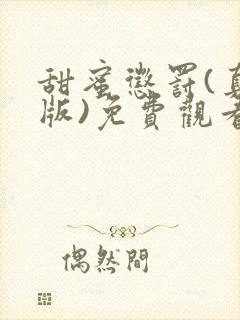 甜蜜懲罰(
版)免費觀
偶然間